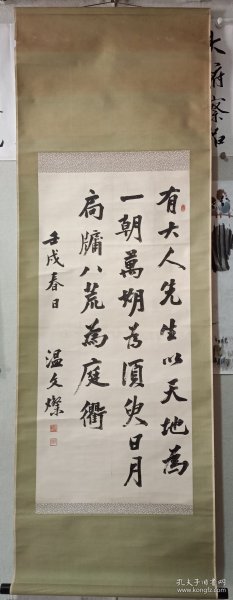 有大人先生以天地為
一朝萬朞為須臾日月
扃牖八荒為庭衢
壬戌春日
温文燦
大府察右
孔夫子旧书网
www.kongfz.com